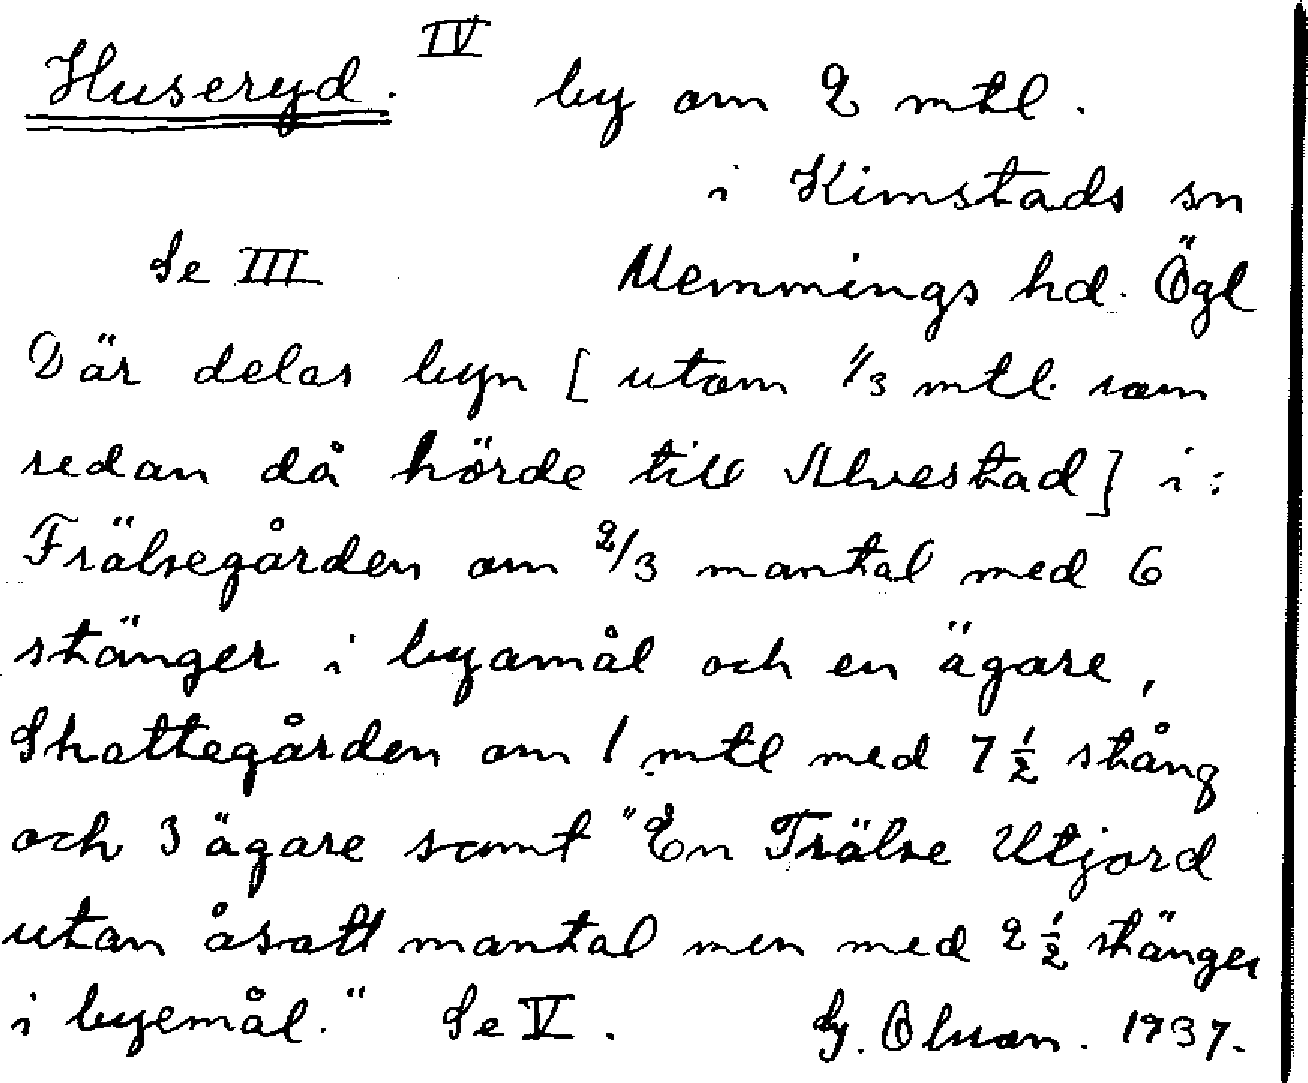 Huseryd. IV by om 2 mtl.
i Kimstads sn
Se III Memmings hd. Ögl
Där delas byn [utom 1/3 mtl. som
sedan då hörde till Alvestad] i:
Frälsegården om 2/3 mantal med 6
stänger i byamål och en ägare,
Skattegården om 1 mtl med 7 1/2 stång
och 3 ägare samt "En Frälse Utjord
utan åsatt mantal men med 2 1/2 stänger
i byemål." Se V. G. Olson. 1937.